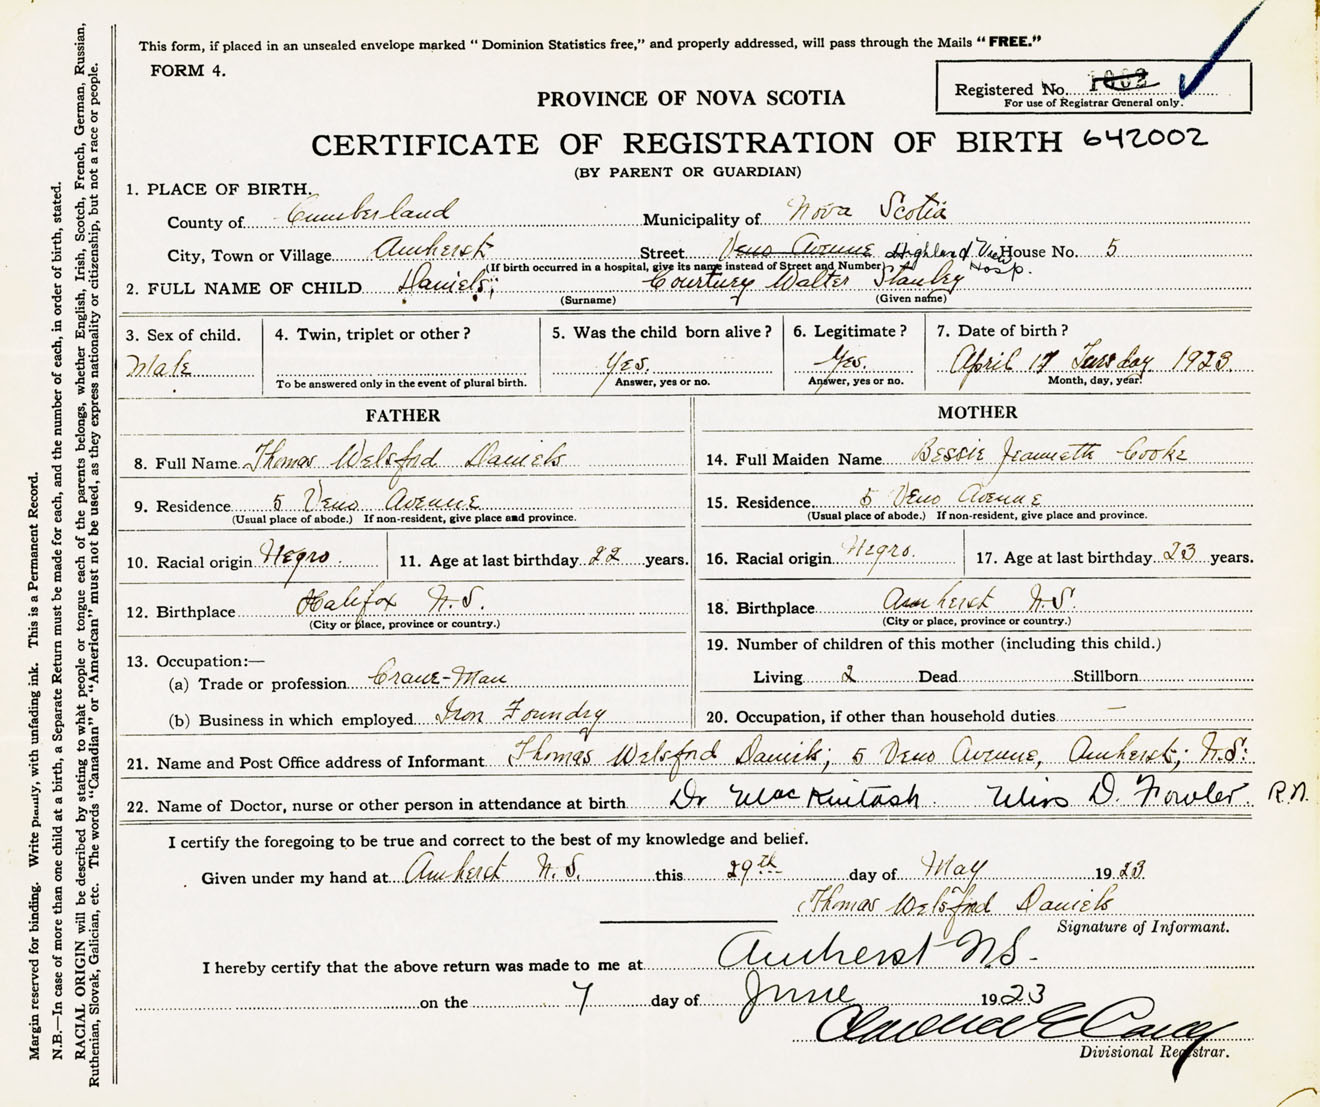 This form, if placed in an unsealed envelope marked "Dominion Statistics free," and properly addressed, will pass through the Mails "FREE."
FORM 4.
Registered No. 1002
For use of Registrar General only.
PROVINCE OF NOVA SCOTIA
CERTIFICATE OF REGISTRATION OF BIRTH 642002
(BY PARENT OR GUARDIAN)
1. PLACE OF BIRTH.
County of Cumberland Municipality of Nova Scotia
City, Town or Village Amherst Street Veno Avenue Highland View Hosp. House No. 5
(If birth occurred in a hospital, give its name instead of Street and Number)
2. FULL NAME OF CHILD Daniels; Courtney Walter Stanley
(Surname) (Given name)
3. Sex of child. 4. Twin, triplet or other? 5. Was the child born alive? 6. Legitimate? 7. Date of birth?
Male Yes. Yes. April 17 Tuesday 1923
To be answered only in the event of plural birth. Answer, yes or no. Answer, yes or no. Month, day, year.
FATHER MOTHER
8. Full Name Thomas Welsford Daniels 14. Full Maiden Name Bessie Jeannette Cooke
9. Residence 5 Veno Avenue 15. Residence 5 Veno Avenue
(Usual place of abode.) If non-resident, give place and province. (Usual place of abode.) If non-resident, give place and province.
10. Racial origin Negro. 11. Age at last birthday 22 years. 16. Racial origin Negro. 17. Age at last birthday 23 years.
12. Birthplace Halifax N.S. 18. Birthplace Amherst N.S.
(City or place, province or country.) (City or place, province or country.)
13. Occupation:— 19. Number of children of this mother (including this child.)
(a) Trade or profession Crane-Man Living 2 Dead Stillborn
(b) Business in which employed Iron Foundry 20. Occupation, if other than household duties —
21. Name and Post Office address of Informant Thomas Welsford Daniels; 5 Veno Avenue, Amherst; N.S.
22. Name of Doctor, nurse or other person in attendance at birth Dr MacKintosh. Miss D. Fowler. R.N.
I certify the foregoing to be true and correct to the best of my knowledge and belief.
Given under my hand at Amherst N.S. this 29th day of May 1923
Thomas Welsford Daniels
Signature of Informant.
I hereby certify that the above return was made to me at Amherst N.S.
on the 7 day of June 1923
Clarence E Casey
Divisional Registrar.
Margin reserved for binding. Write plainly, with unfading ink. This is a Permanent Record.
N.B.—In case of more than one child at a birth, a Separate Return must be made for each, and the number of each, in order of birth, stated.
RACIAL ORIGIN will be described by stating to what people or tongue each of the parents belongs, whether English, Irish, Scotch, French, German, Russian,
Ruthenian, Slovak, Galician, etc. The words "Canadian" or "American" must not be used, as they express nationality or citizenship, but not a race or people.